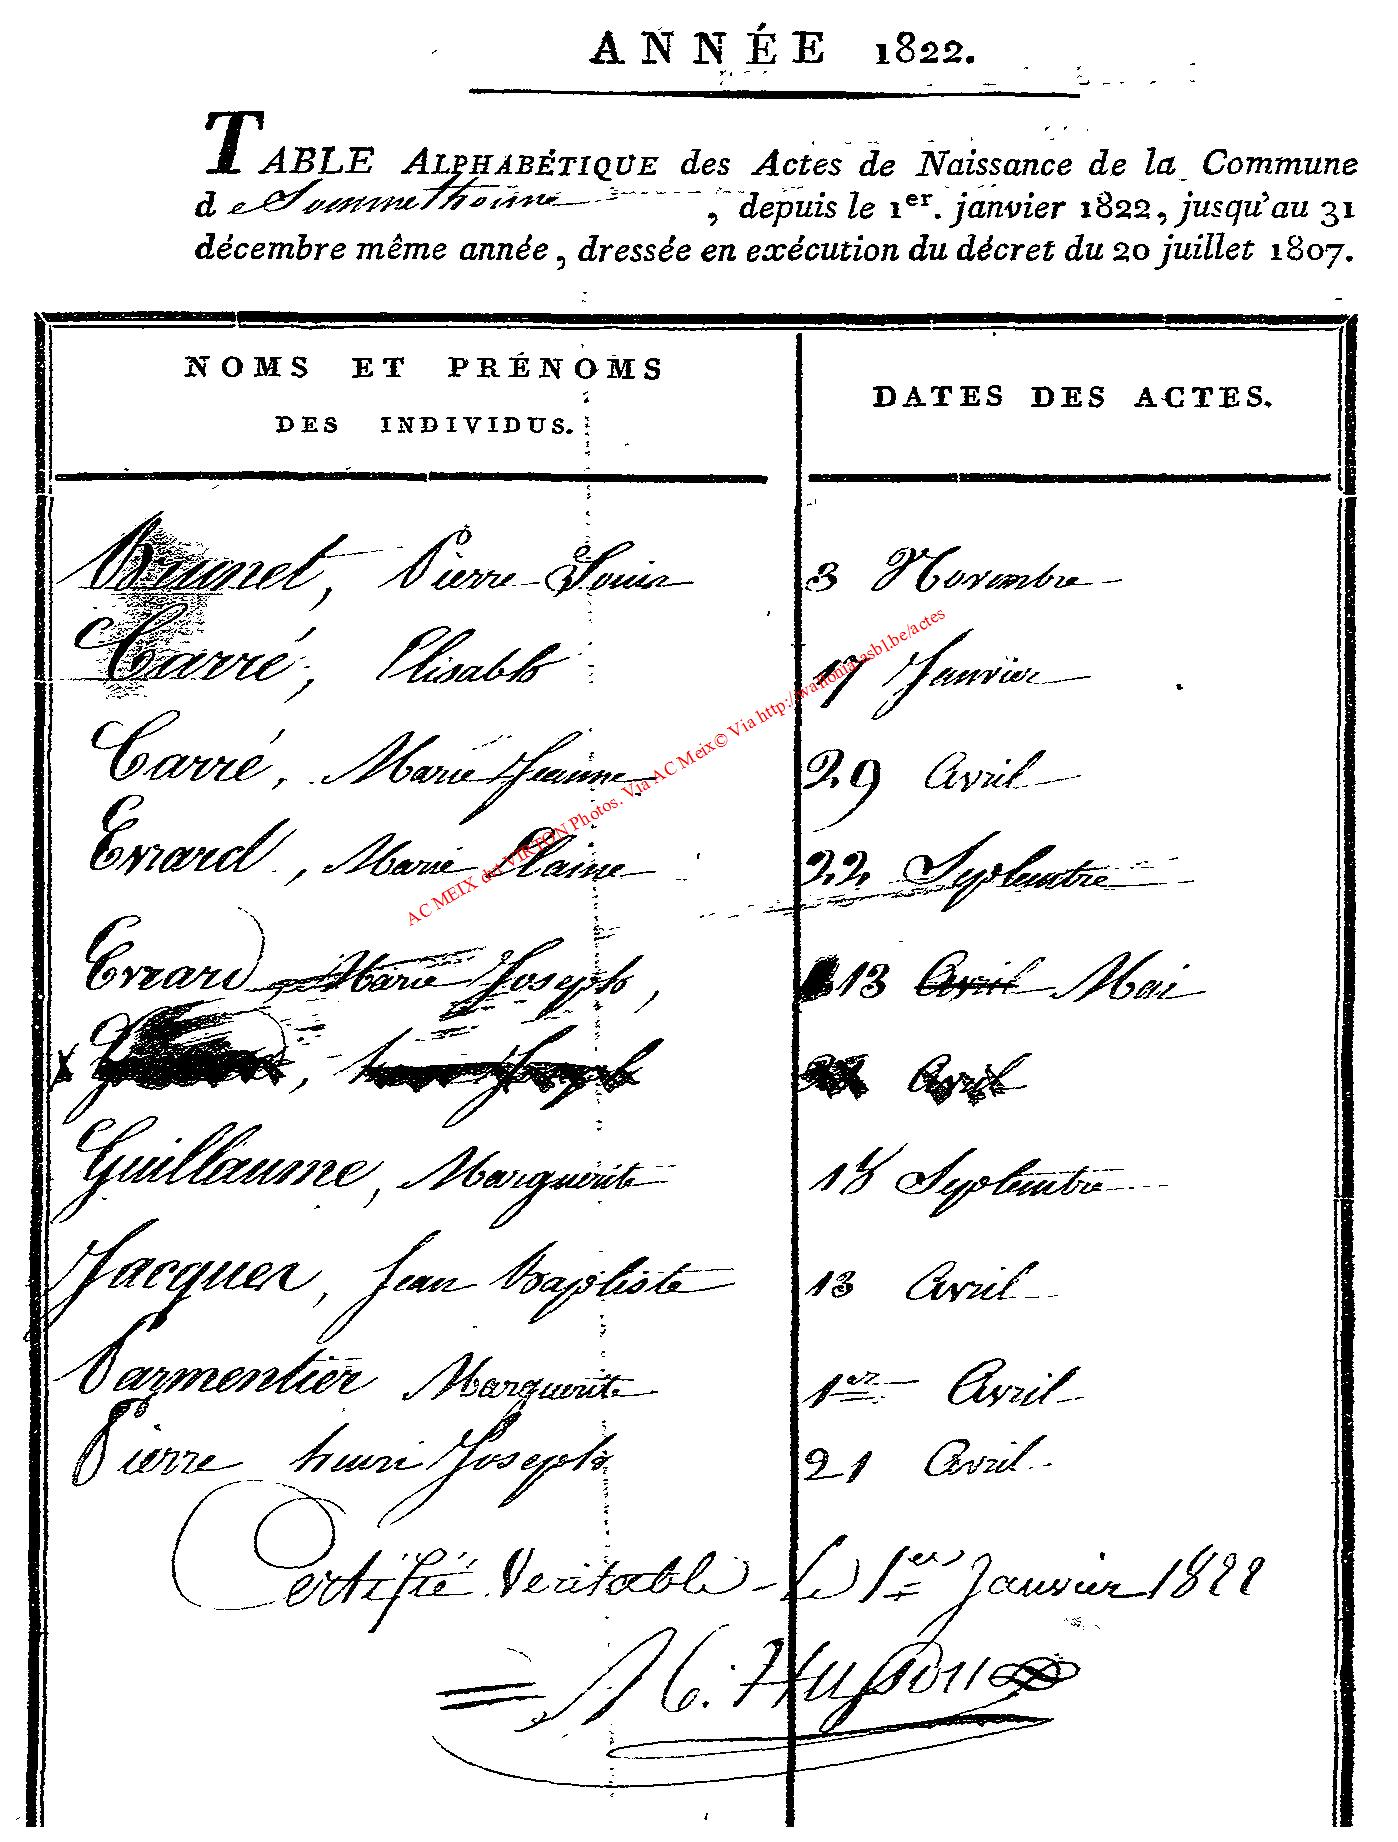 ANNÉE 1822.
TABLE ALPHABÉTIQUE des Actes de Naissance de la Commune
de Sommethonne, depuis le 1er. janvier 1822, jusqu'au 31
décembre même année, dressée en exécution du décret du 20 juillet 1807.
NOMS ET PRÉNOMS
DES INDIVIDUS.
DATES DES ACTES.
Brunet, Pierre Louis 3 Novembre
Carré, Elisabth 17 Janvier
Carré, Marie Jeanne 29 Avril
Evrard, Marie 22 Septembre
Evrard, Marie Joseph, 13 Avril Mai
Joseph Avril
Guillaume, Marguerite 18 Septembre
Jacques, Jean Baptiste 13 Avril
Parmentier Marguerite 1er Avril
Pierre henri Joseph 21 Avril
Certifié Veritable le 1er Janvier 1822
Husson
AC MEIX dvt VIRTON Photos. Via AC Meix© Via http://wallonia.asbl.be/actes